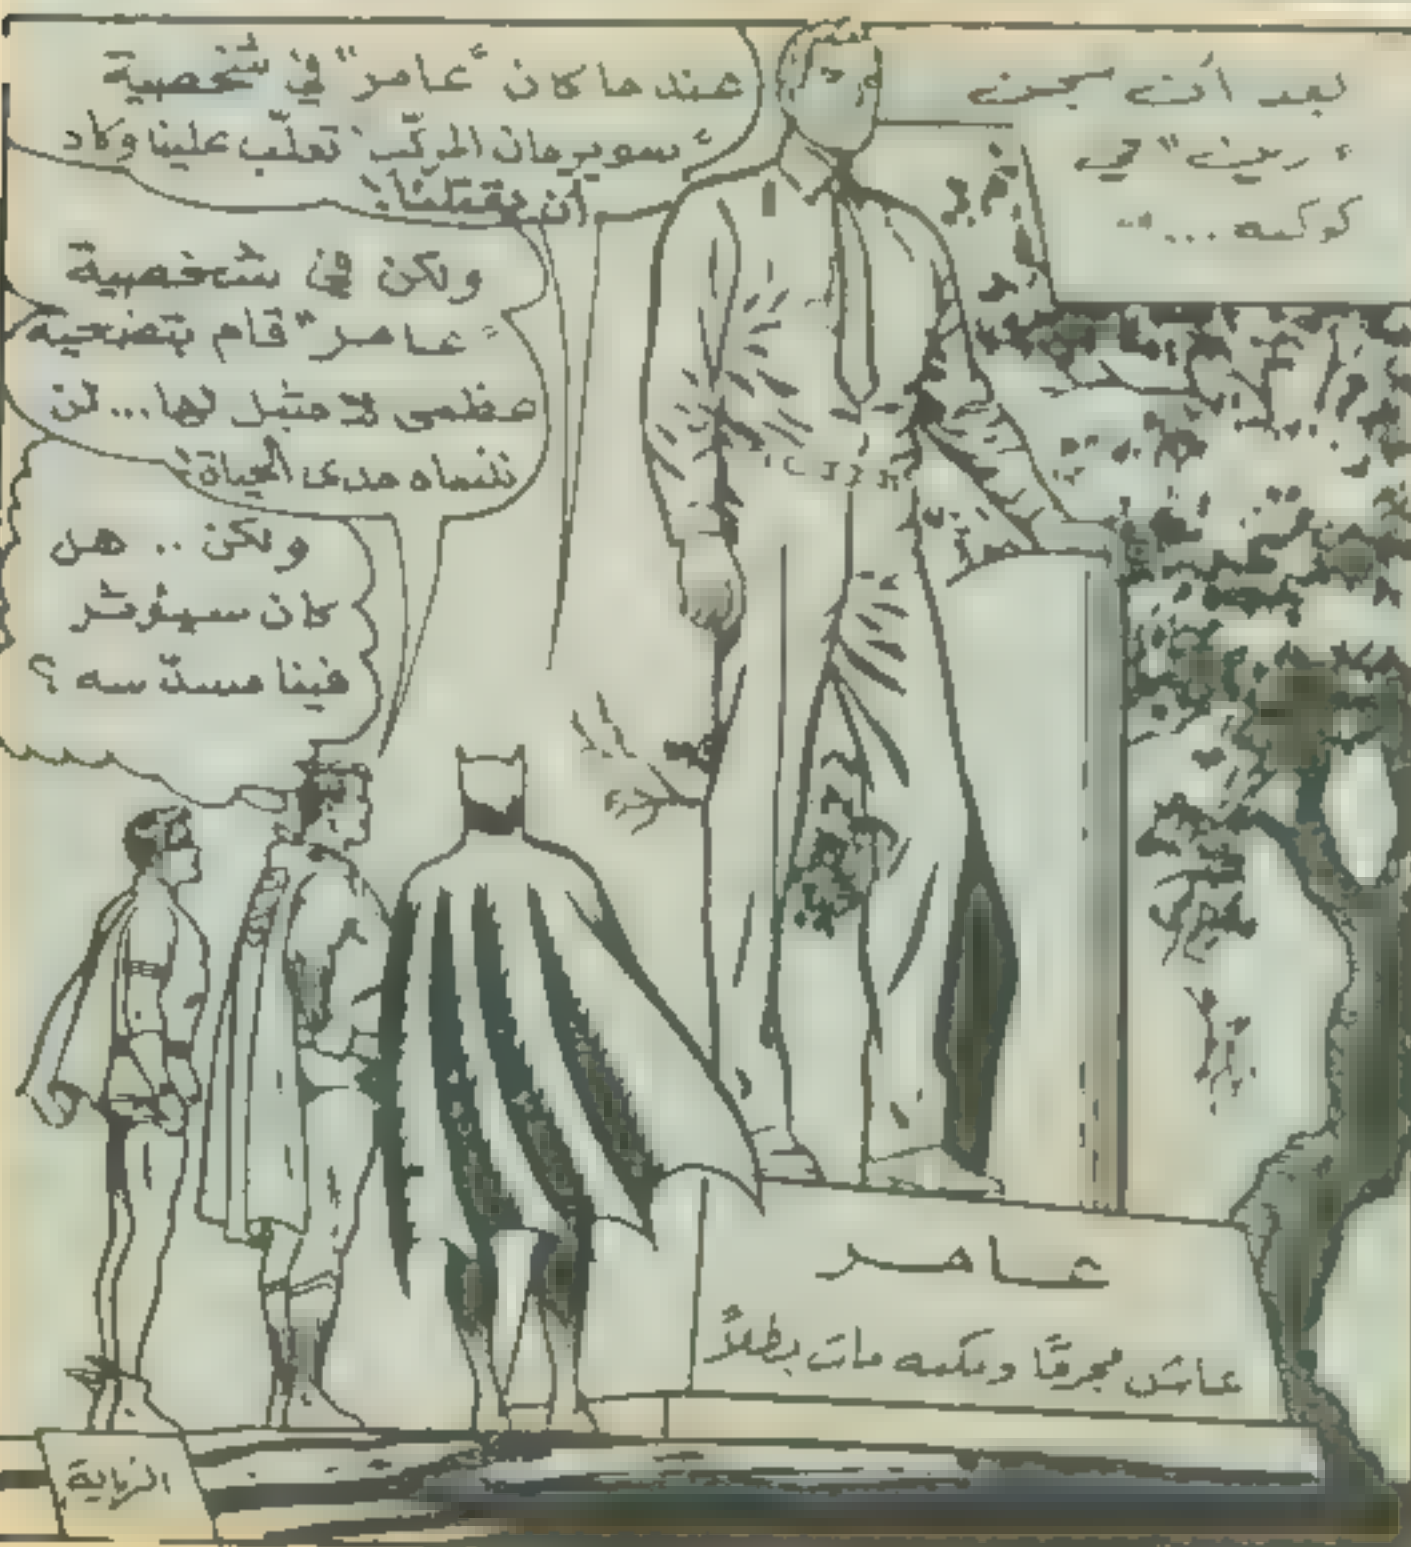 بعد أن سجن
"رين" في
كوكبه ...
عندما كان "عامر" في شخصية
"سوبرمان المركّب" تغلّب علينا وكاد
أن يقتلنا!
ولكن في شخصية
"عامر" قام بتضحية
عظمى لا مثيل لها... لن
ننساه مدى الحياة!
ولكن .. هل
كان سيؤثر
فينا مسدّسه ؟
عامر
عاش مجرمًا ولكنه مات بطلاً
النهاية